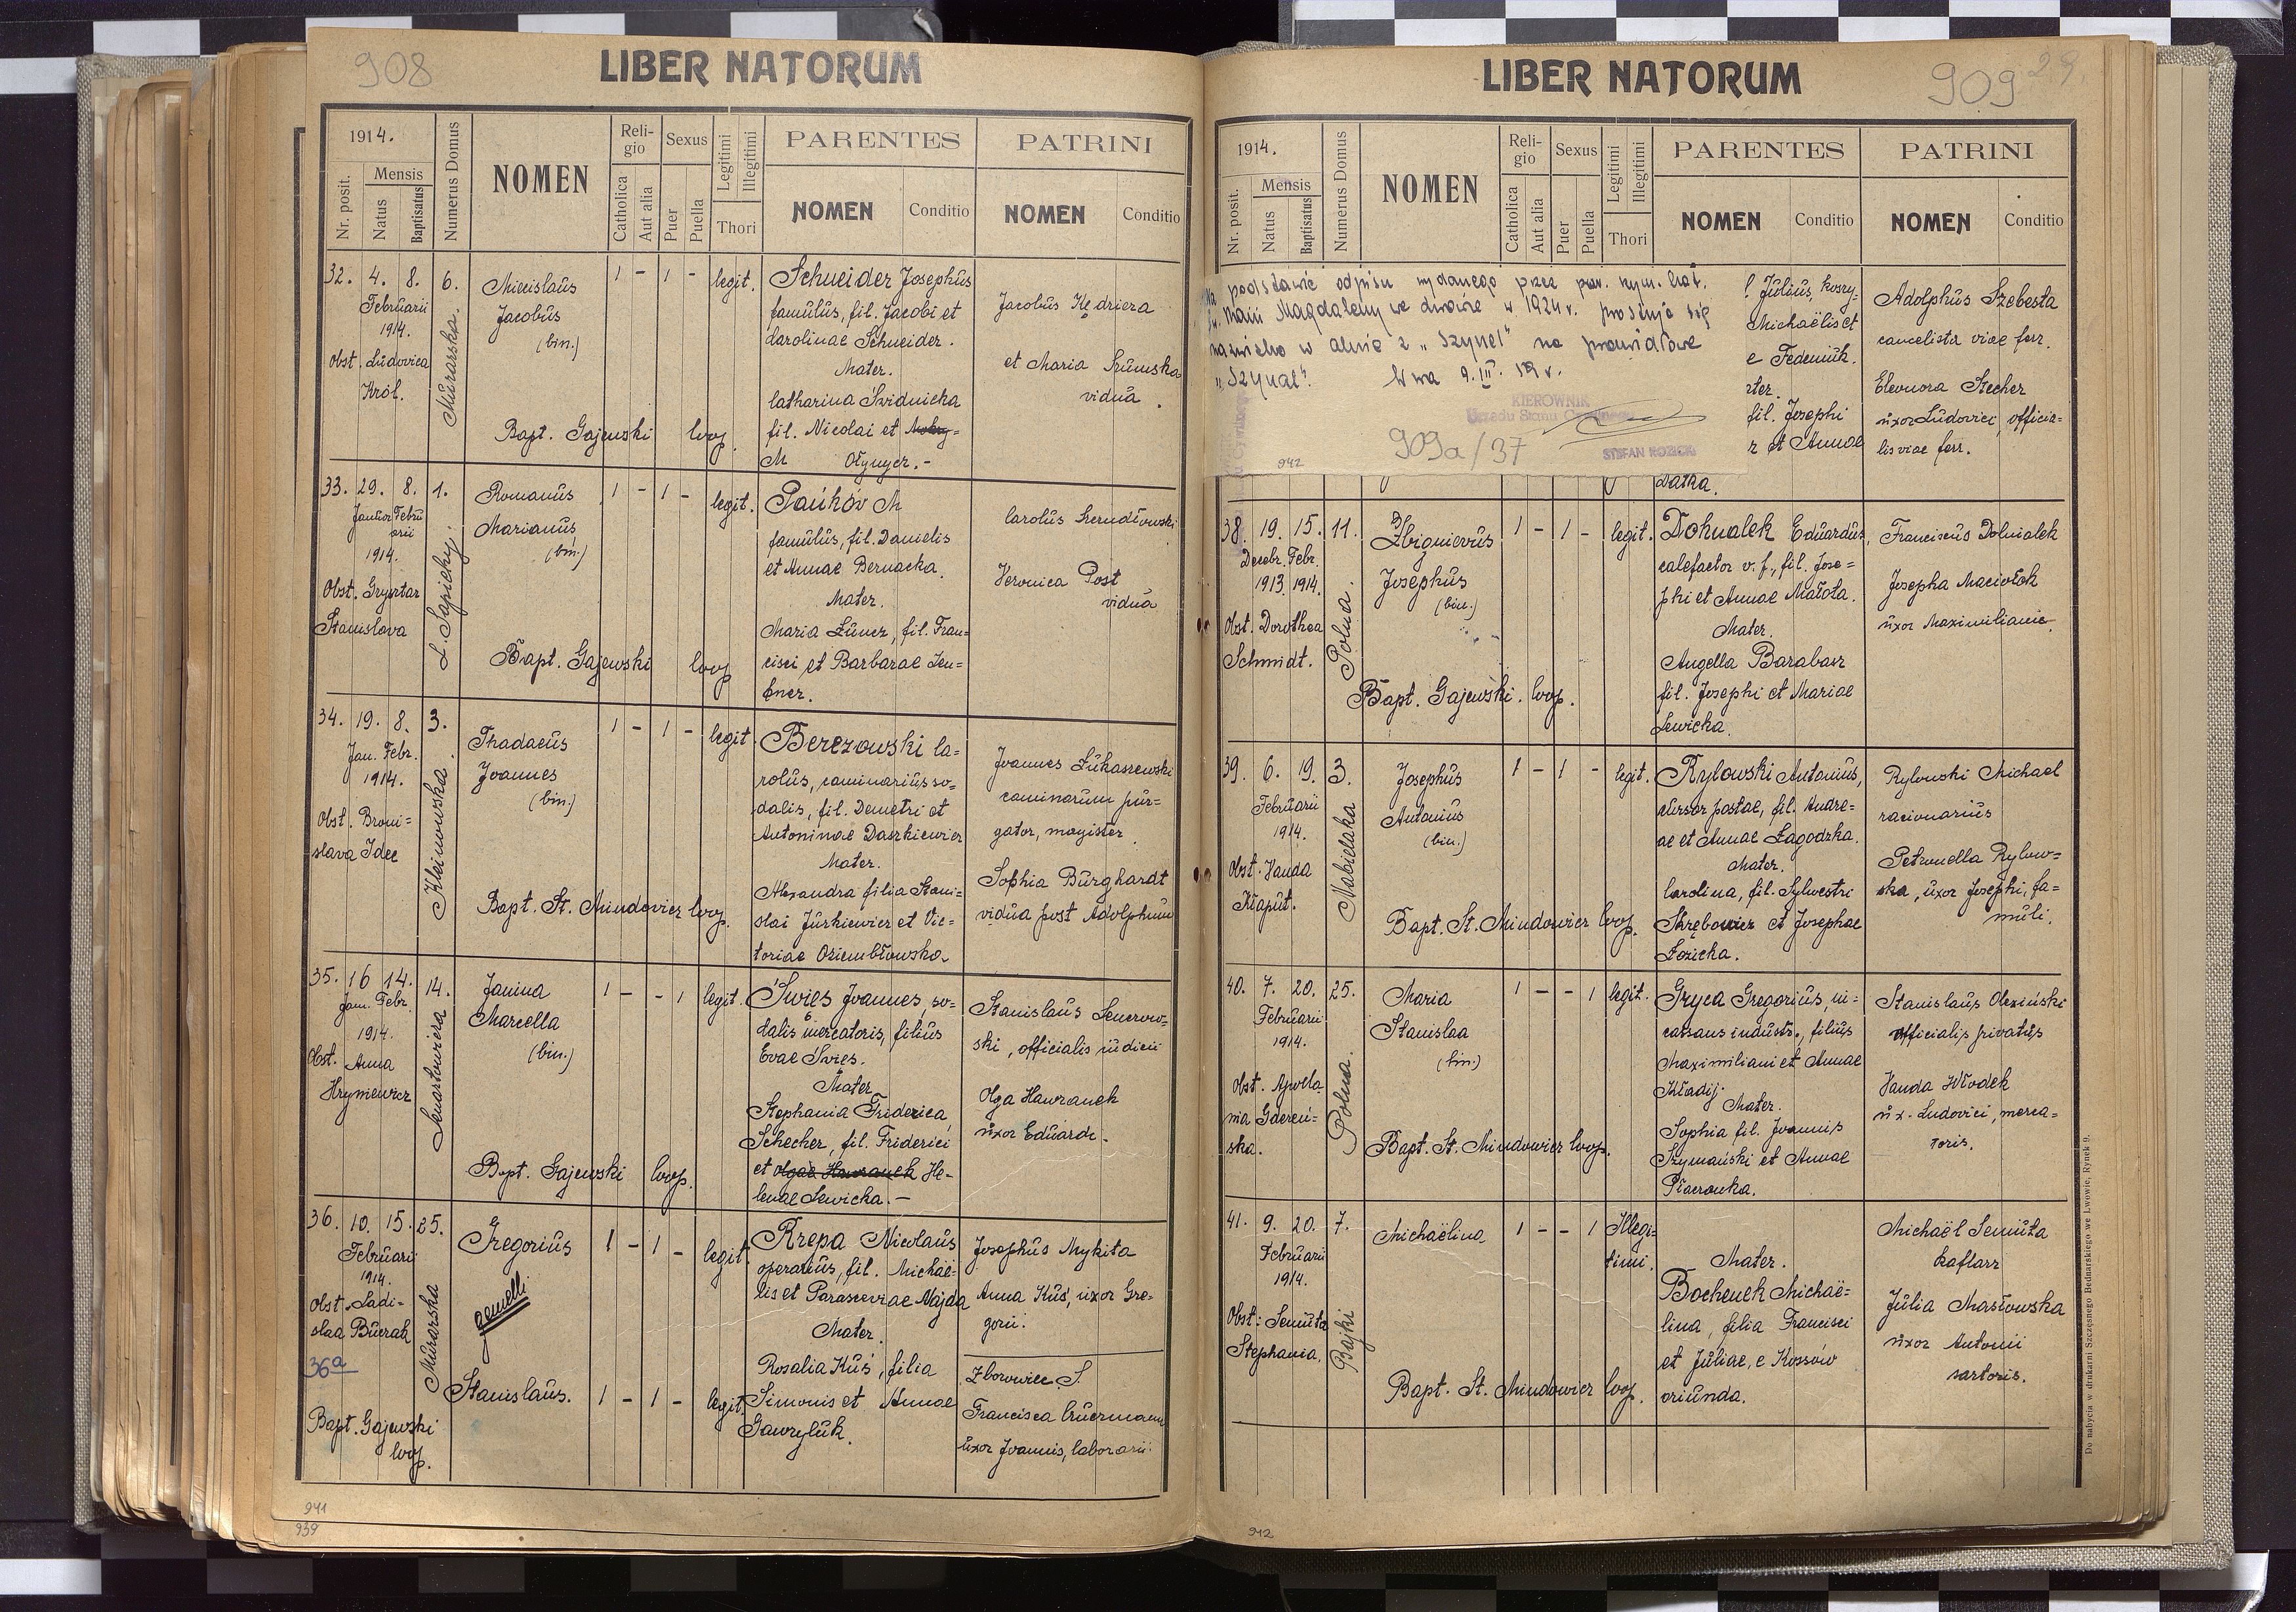 908
LIBER NATORUM
1914.
Nr. posit.
Mensis
Natus
Baptisatus
Numerus Domus
NOMEN
Religio
Catholica
Aut alia
Sexus
Puer
Puella
Legitimi
Illegitimi
Thori
PARENTES
NOMEN
Conditio
PATRINI
NOMEN
Conditio
32. 4. 8. 6.
Februarii
1914.
Obst. Ludovica
Król.
Murarska.
Miecislaus
Jacobus
(bin.)
1 - 1 - legit.
Bapt. Gajewski coop.
Schneider Josephus
famulus, fil. Jacobi et
Carolinae Schneider.
Mater.
Catharina Świdnicka
fil. Nicolai et
M
Jacobus Kędziera
et Maria
vidua.
33. 29. 8. 1.
Januar Febru
arii
1914.
Obst.
Stanislava
L. Sapiehy.
Romanus
Marianus
(bin.)
1 - 1 - legit.
Bapt. Gajewski coop
Pańków M
famulus, fil. Danielis
et Annae Bernacka.
Mater.
Maria Luner, fil. Fran=
cisci et Barbarae
Carolus
Veronica Post
vidua
34. 19. 8. 3.
Jan. Febr.
1914.
Obst. Broni=
slava Idec
Kleinowska.
Thadaeus
Joannes
(bin.)
1 - 1 - legit
Bapt. St. Mindowicz coop.
Berezowski Ca=
rolus, caminarius so=
dalis, fil. Demetri et
Antoninae Daszkiewicz
Mater.
Alexandra filia Stani=
slai Jurkiewicz et Vic=
toriae Oziembłowska.
Joannes Łukaszewski
caminorum pur=
gator, magister.
Sophia Burghardt
vidua post Adolphum
35. 16 14. 14.
Jan. Febr.
1914.
Obst. Anna
Hryniewicz
Lenartowicza
Janina
Marcella
(bin.)
1 - - 1 legit.
Bapt. Gajewski coop.
Świes Joannes, so=
dalis mercatoris, filius
Evae Świes.
Mater
Stephania Friderica
Schecher, fil. Friderici
et Olgae Hawranek He=
lenae Lewicka. -
Stanislaus
ski, officialis iudicii
Olga Hawranek
uxor Eduardi.
36. 10. 15. 25.
Februarii
1914.
Obst. Ladi=
slaa Burak
36a
Bapt. Gajewski
coop.
Murarska
Gregorius
gemelli
Stanislaus.
1 - 1 - legit.
1 - 1 - legit.
Krepa Nicolaus
operarius, fil. Michaë=
lis et Parasceviae Najda
Mater.
Rosalia Kuś, filia
Simonis et Annae
Gawryluk.
Josephus Mykita
Anna Kuś, uxor Gre=
gorii.
Zborowiec S.
Francisca
uxor Joannis, laborarii.
941
939
909
29
LIBER NATORUM
1914.
Nr. posit.
Mensis
Natus
Baptisatus
Numerus Domus
NOMEN
Religio
Catholica
Aut alia
Sexus
Puer
Puella
Legitimi
Illegitimi
Thori
PARENTES
NOMEN
Conditio
PATRINI
NOMEN
Conditio
Na podstawie odpisu wydanego przez par. rzym. kat.
św. Marii Magdaleny we Lwowie w 1924 r. prostuje się
nazwisko w aktcie z „Szynel" na prawidłowe
„Szynal". W-wa 9.III.59 r.
KIEROWNIK
Urzędu Stanu Cywilnego
STEFAN
909a/37
942
Julius,
Michaëlis et
e Fedeniuk.
ter.
fil. Josephi
r et Annae
Adolphus Szebesta
cancelista viae ferr.
Eleonora Stecher
uxor Ludovici, officia=
lis viae ferr.
38. 19. 15. 11.
Decebr. Febr.
1913. 1914.
Obst. Dorothea
Schmidt.
Polna.
Zbignievus
Josephus
(bin.)
1 - 1 - legit.
Bapt. Gajewski. coop.
Dohnalek Eduardus,
calefactor v. f., fil. Jose=
phi et Annae Małota.
Mater.
Angella Barabasz
fil. Josephi et Mariae
Lewicka.
Franciscus Dolnialek
Josepha Maciołok
uxor Maximiliani.
39. 6. 19. 3.
Februarii
1914.
Obst. Vanda
Kłaput.
Nabielaka
Josephus
Antonius
(bin.)
1 - 1 - legit.
Bapt. St. Mindowicz coop.
Rylowski Antonius,
cursor postae, fil. Andre=
ae et Annae Łagodzka.
Mater.
Carolina, fil. Sylvestri
Skrębowicz et Josephae
Łozicka.
Rylowski Michael
racionarius
Petronella Rylow=
ska, uxor Josephi, fa=
muli.
40. 7. 20. 25.
Februarii
1914.
Obst. Apola
nia
ska.
Polna.
Maria
Stanislaa
(bin.)
1 - - 1 legit.
Bapt. St. Mindowicz coop.
Gryca Gregorius, vi=
cassans industr., filius
Maximiliani et Annae
Kładij
Mater.
Sophia fil. Joannis
Szymański et Annae
Stanislaus Olexiński
officialis privatus
Vanda Włodek
ux. Ludovici, merca=
toris.
41. 9. 20. 7.
Februarii
1914.
Obst: Semuta
Stephania.
Bajki
Michaëlina
1 - - 1 Illegi=
timi.
Bapt. St. Mindowicz coop.
Mater.
Bochenek Michaë=
lina, filia Francisci
et Juliae, e Kossów
oriunda.
Michaël Semuta
kaflarz
Julia Masłowska
uxor Antonii
sartoris.
Do nabycia w drukarni Szczęsnego Bednarskiego we Lwowie, Rynek 9.
942